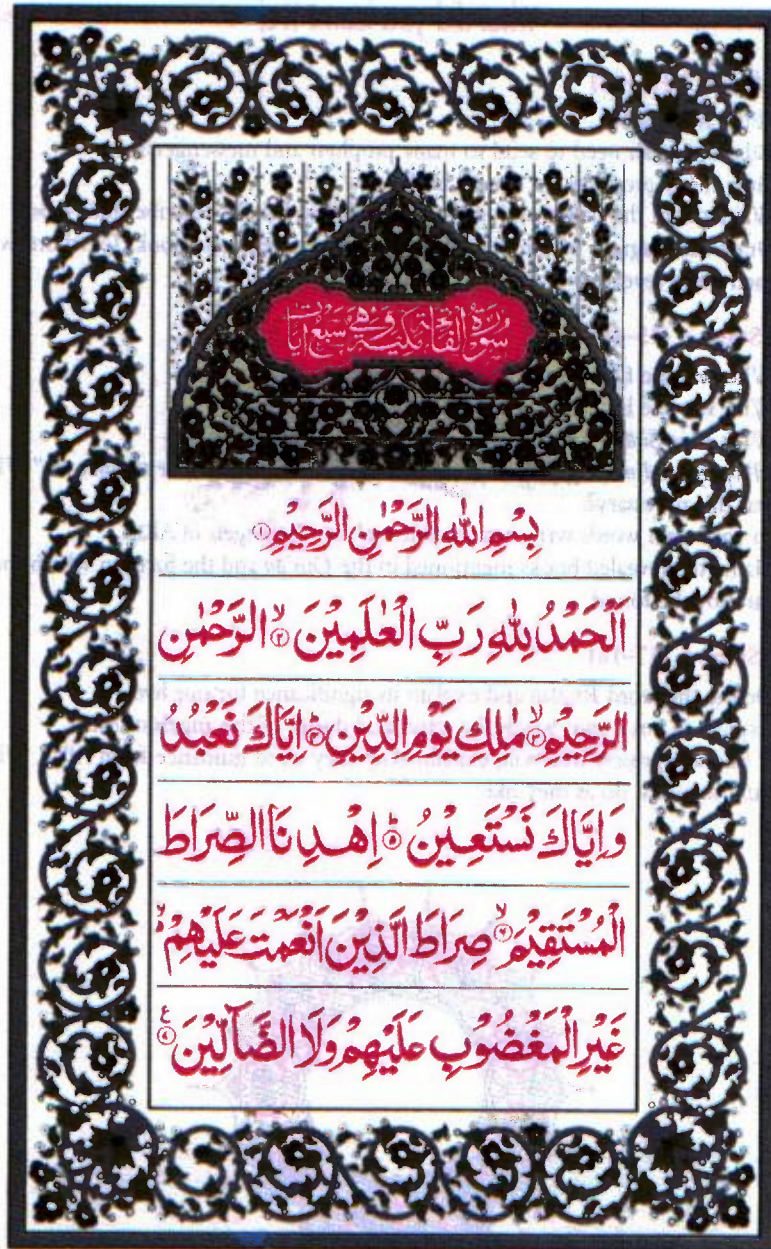 سُوْرَةُ الْفَاتِحَةِ مَكِّيَّةٌ وَهِيَ سَبْعُ اٰيَاتٍ
بِسْمِ اللّٰهِ الرَّحْمٰنِ الرَّحِيْمِ ۝۱
اَلْحَمْدُ لِلّٰهِ رَبِّ الْعٰلَمِيْنَ ۝۲ۙ الرَّحْمٰنِ
الرَّحِيْمِ ۝۳ۙ مٰلِكِ يَوْمِ الدِّيْنِ ۝۴ؕ اِيَّاكَ نَعْبُدُ
وَاِيَّاكَ نَسْتَعِيْنُ ۝۵ؕ اِهْدِنَا الصِّرَاطَ
الْمُسْتَقِيْمَ ۝۶ۙ صِرَاطَ الَّذِيْنَ اَنْعَمْتَ عَلَيْهِمْ ۙ
غَيْرِ الْمَغْضُوْبِ عَلَيْهِمْ وَلَا الضَّآلِّيْنَ ۝۷ع